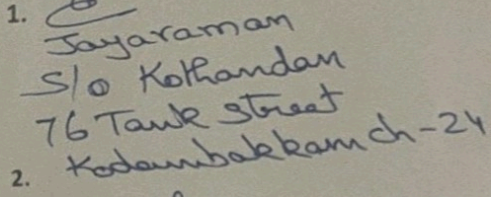 1.
Jayaraman
S/o Kothandan
76 Tank street
Kodambakkam ch-24
2.